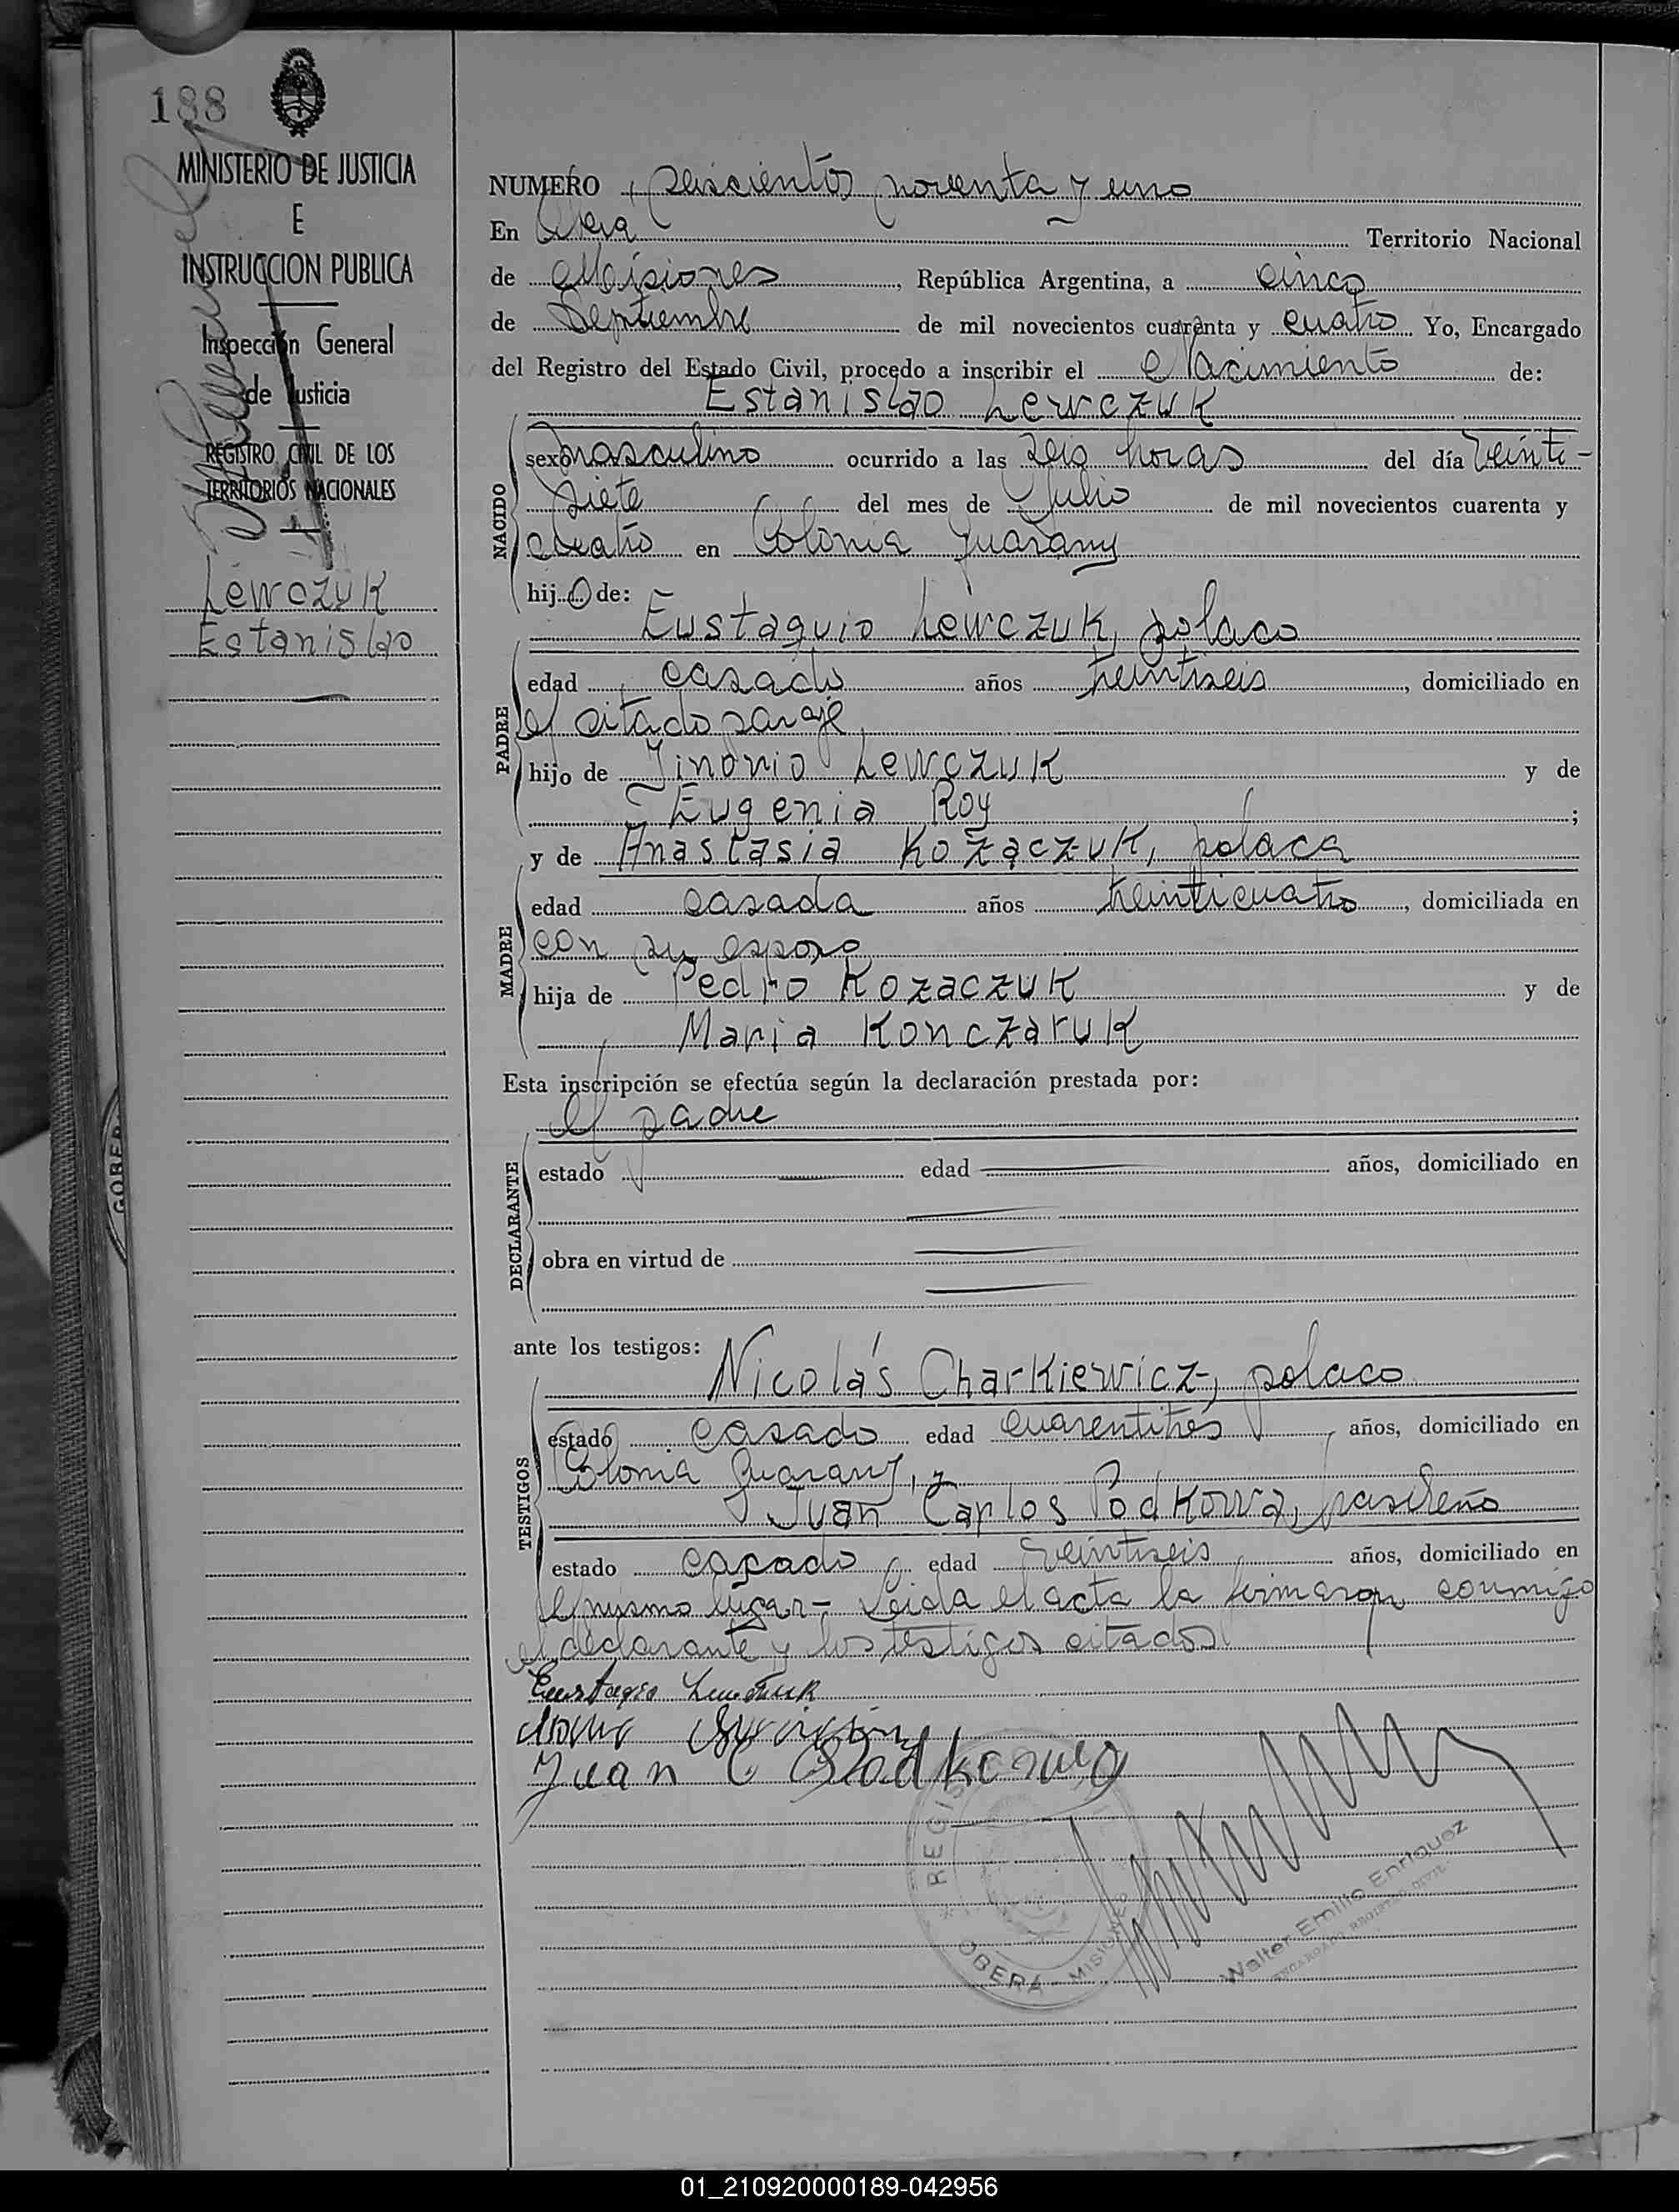 188
MINISTERIO DE JUSTICIA
E
INSTRUCCION PUBLICA
Inspección General
de Justicia
REGISTRO CIVIL DE LOS
TERRITORIOS NACIONALES
Lewczuk
Estanislao
NUMERO seiscientos noventa y uno
En Oberá Territorio Nacional
de Misiones, República Argentina, a cinco
de Septiembre de mil novecientos cuarenta y cuatro Yo, Encargado
del Registro del Estado Civil, procedo a inscribir el Nacimiento de:
Estanislao Lewczuk
NACIDO
sexo masculino ocurrido a las seis horas del día veinti-
siete del mes de Julio de mil novecientos cuarenta y
cuatro en Colonia Guarany
hijo de:
Eustaquio Lewczuk, polaco
PADRE
edad casado años treintiseis, domiciliado en
el citado paraje,
hijo de Jinonio Lewczuk y de
Eugenia Roy;
y de Anastasia Kozaczuk, polaca
MADRE
edad casada años treinticuatro, domiciliada en
con su esposo
hija de Pedro Kozaczuk y de
Maria Konczaruk
Esta inscripción se efectúa según la declaración prestada por:
el padre
DECLARANTE
estado edad años, domiciliado en
obra en virtud de
ante los testigos:
Nicolás Charkiewicz, polaco
TESTIGOS
estado casado edad cuarentitrés años, domiciliado en
Colonia Guarany, y
Juan Carlos Podkowa, brasileño
estado casado edad veintiseis años, domiciliado en
el mismo lugar- Leida el acta la firmaron conmigo
el declarante y los testigos citados
Eustaqio Lewczuk
Juan C Podkowa
REGIS
OBERÁ - MISIONES
Walter Emilio Enriquez
ENCARGADO REGISTRO CIVIL
GOBER
01_210920000189-042956